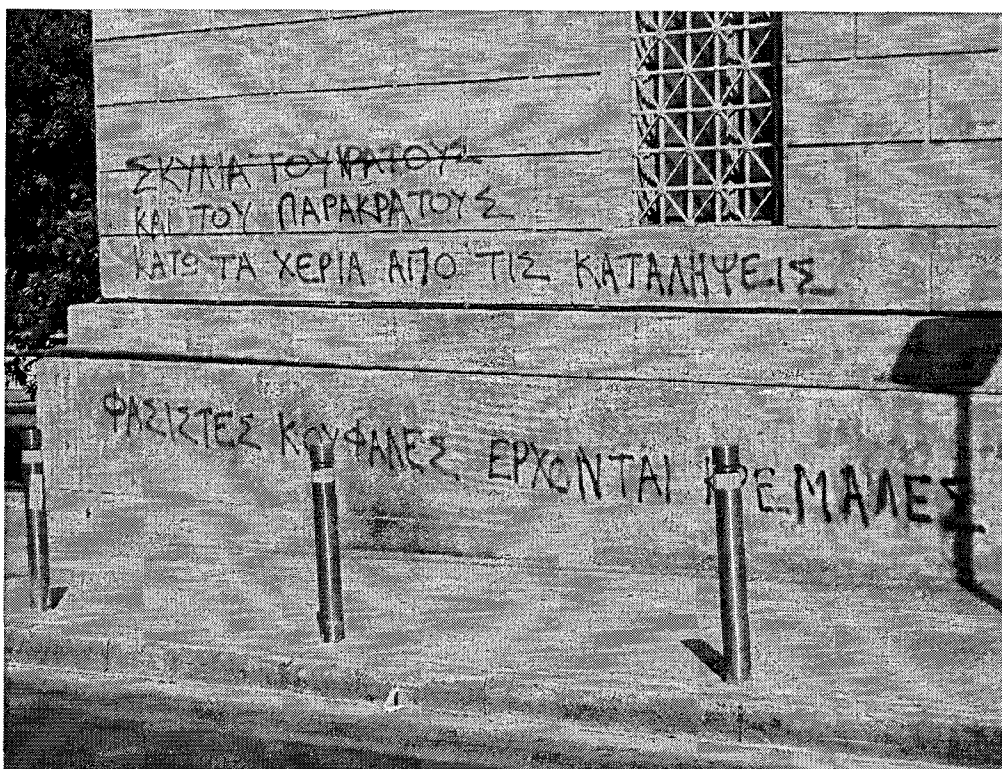 ΣΚΥΛΙΑ ΤΟΥ ΚΡΑΤΟΥΣ
ΚΑΙ ΤΟΥ ΠΑΡΑΚΡΑΤΟΥΣ
ΚΑΤΩ ΤΑ ΧΕΡΙΑ ΑΠΟ ΤΙΣ ΚΑΤΑΛΗΨΕΙΣ
ΦΑΣΙΣΤΕΣ ΚΟΥΦΑΛΕΣ ΕΡΧΟΝΤΑΙ ΚΡΕΜΑΛΕΣ